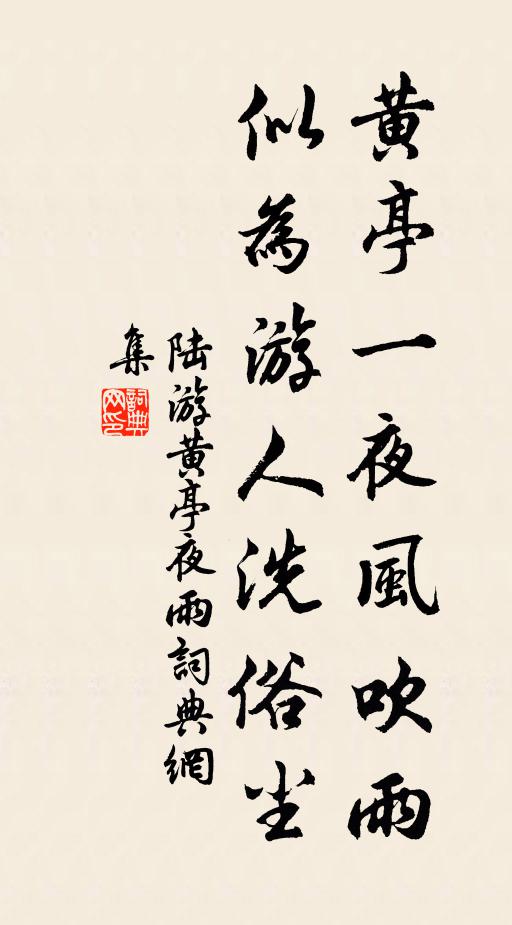 黄亭一夜風吹雨
似為游人洗俗尘
陆游黄亭夜雨詞典網
集
詞典
网印